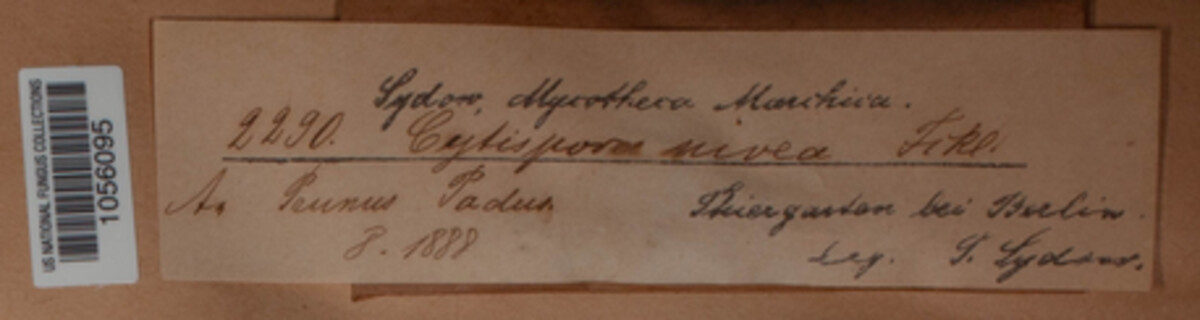 US NATIONAL FUNGUS COLLECTIONS
1056095
Sydow, Mycotheca Marchica.
2290. Cytispora nivea Fckl.
An Prunus Padus
8. 1888
Thiergarten bei Berlin.
Leg. P. Sydow.